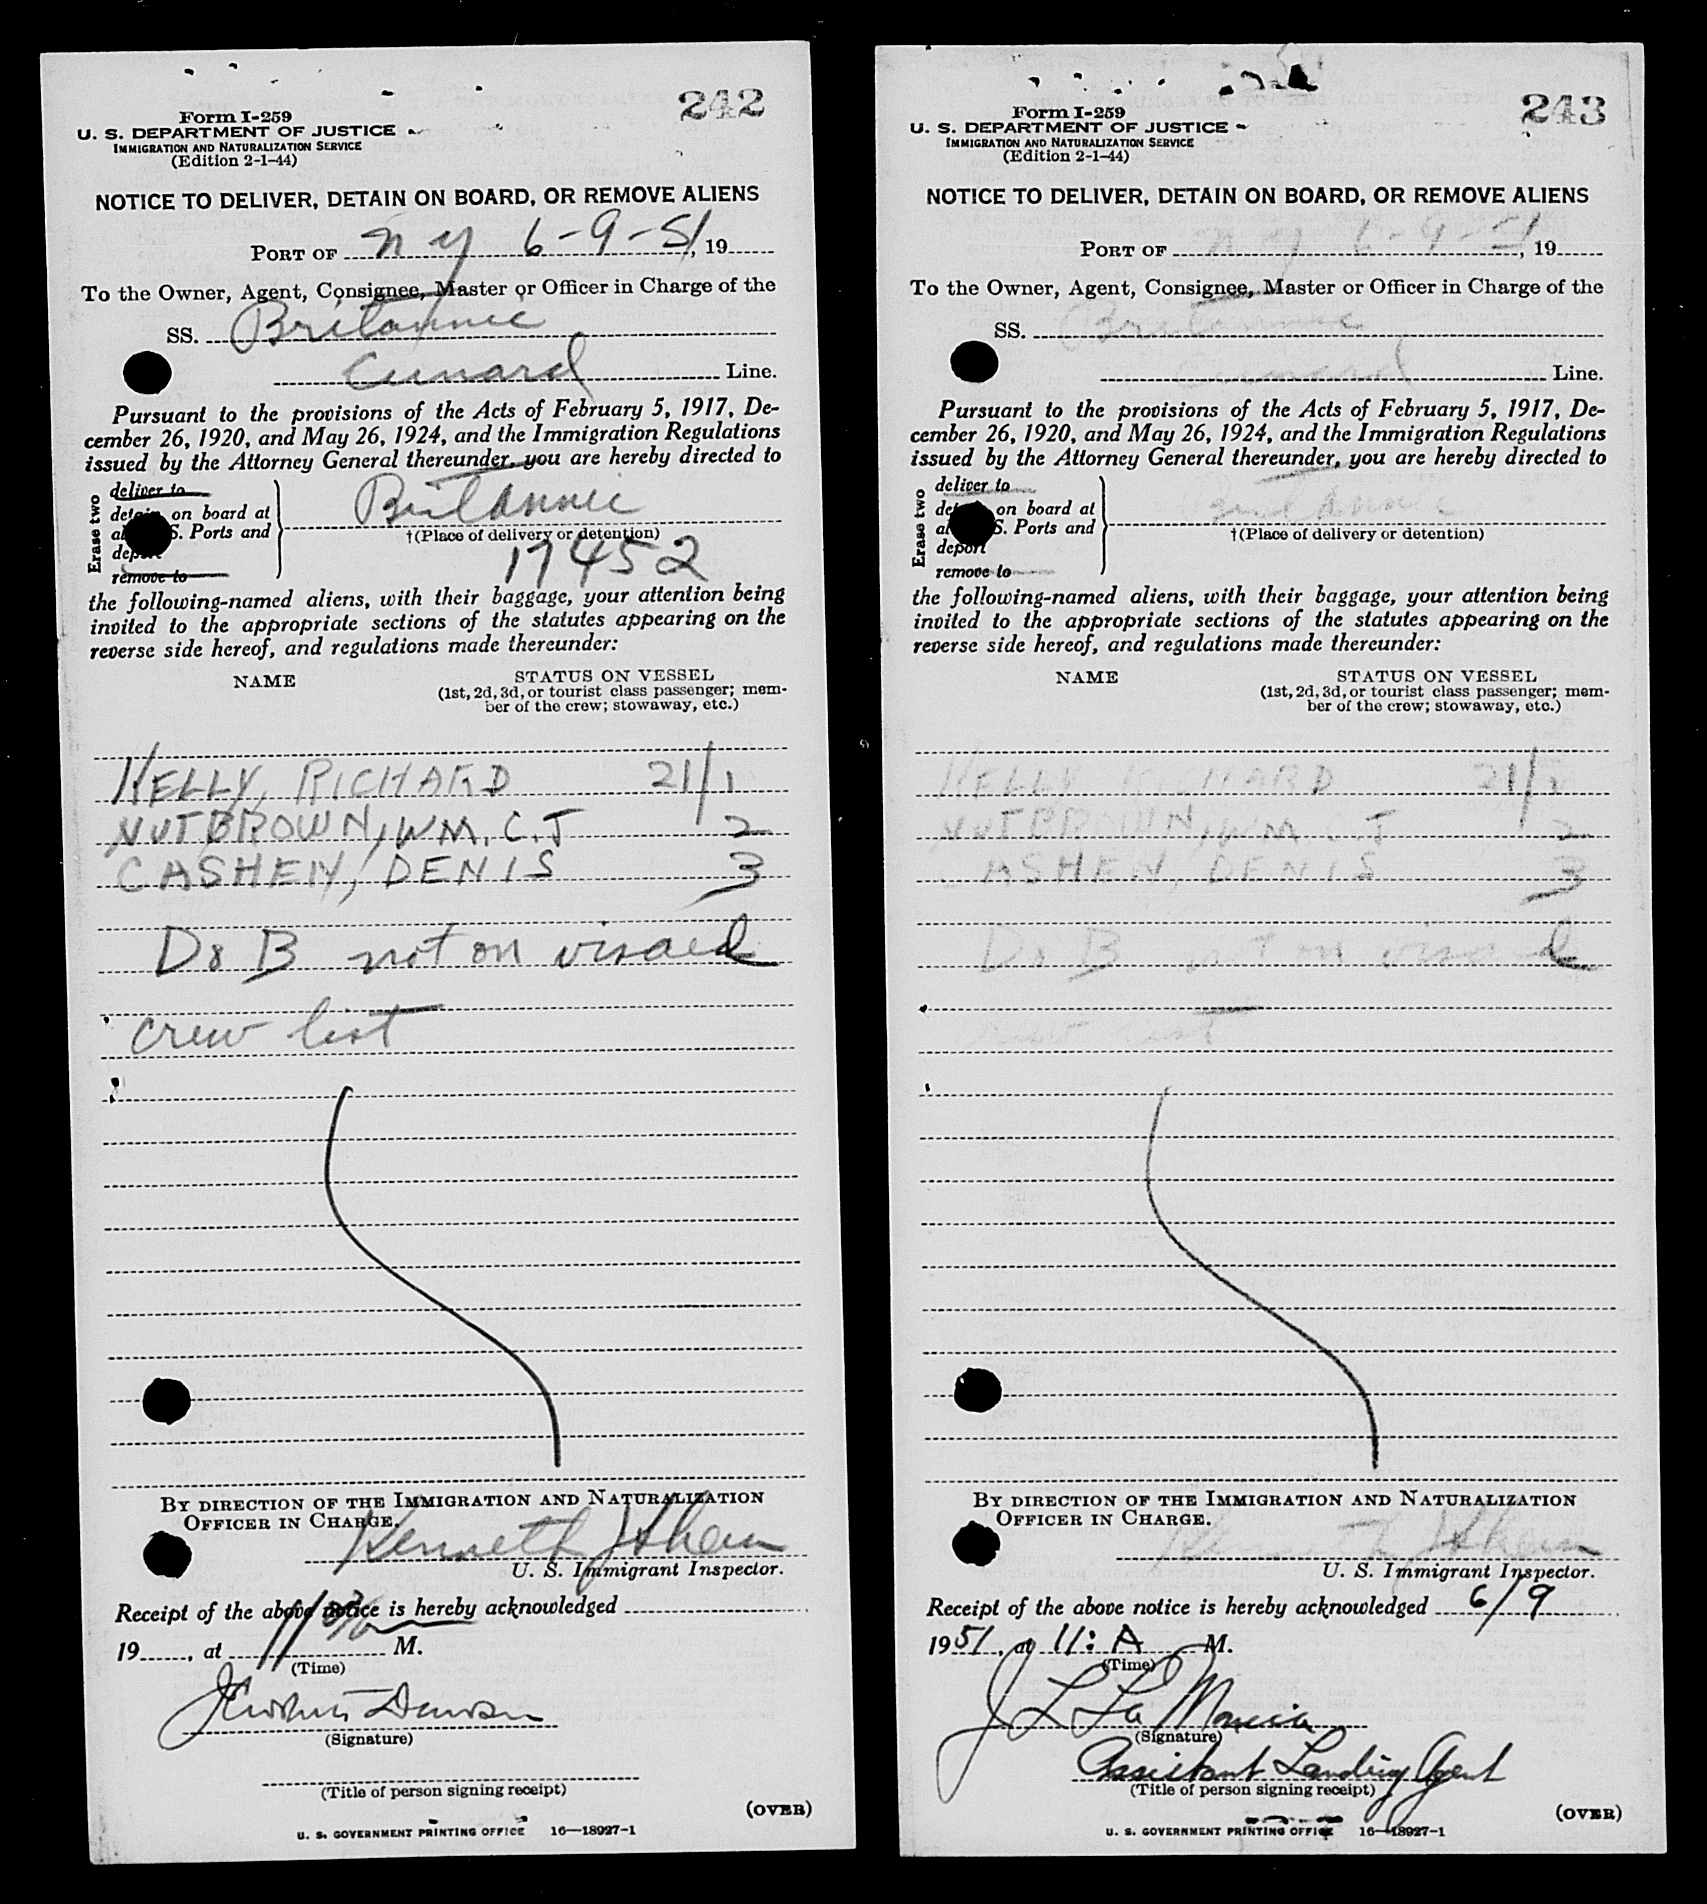 242
Form I-259
U. S. DEPARTMENT OF JUSTICE
IMMIGRATION AND NATURALIZATION SERVICE
(Edition 2-1-44)
NOTICE TO DELIVER, DETAIN ON BOARD, OR REMOVE ALIENS
PORT OF N Y 6-9-51, 19
To the Owner, Agent, Consignee, Master or Officer in Charge of the
SS. Britannic
Cunard Line.
Pursuant to the provisions of the Acts of February 5, 1917, De-
cember 26, 1920, and May 26, 1924, and the Immigration Regulations
issued by the Attorney General thereunder, you are hereby directed to
Erase two
deliver to
on board at
S. Ports and
remove to
Britannic
†(Place of delivery or detention)
17452
the following-named aliens, with their baggage, your attention being
invited to the appropriate sections of the statutes appearing on the
reverse side hereof, and regulations made thereunder:
NAME STATUS ON VESSEL
(1st, 2d, 3d, or tourist class passenger; mem-
ber of the crew; stowaway, etc.)
KELLY, RICHARD 21/1
NUTBROWN, WM. C. J 2
CASHEN, DENIS 3
D o B not on visaed
crew list
BY DIRECTION OF THE IMMIGRATION AND NATURALIZATION
OFFICER IN CHARGE.
Kenneth
U. S. Immigrant Inspector.
Receipt of the above notice is hereby acknowledged
19, at M.
(Time)
(Signature)
(Title of person signing receipt)
(OVER)
U. S. GOVERNMENT PRINTING OFFICE 16—18927-1
243
Form I-259
U. S. DEPARTMENT OF JUSTICE
IMMIGRATION AND NATURALIZATION SERVICE
(Edition 2-1-44)
NOTICE TO DELIVER, DETAIN ON BOARD, OR REMOVE ALIENS
PORT OF N Y 6-9-51, 19
To the Owner, Agent, Consignee, Master or Officer in Charge of the
SS. Britannic
Cunard Line.
Pursuant to the provisions of the Acts of February 5, 1917, De-
cember 26, 1920, and May 26, 1924, and the Immigration Regulations
issued by the Attorney General thereunder, you are hereby directed to
Erase two
deliver to
on board at
S. Ports and
deport
remove to
Britannic
†(Place of delivery or detention)
the following-named aliens, with their baggage, your attention being
invited to the appropriate sections of the statutes appearing on the
reverse side hereof, and regulations made thereunder:
NAME STATUS ON VESSEL
(1st, 2d, 3d, or tourist class passenger; mem-
ber of the crew; stowaway, etc.)
KELLY RICHARD 21/1
NUTBROWN, WM C. J 2
CASHEN, DENIS 3
D o B not on visaed
crew list
BY DIRECTION OF THE IMMIGRATION AND NATURALIZATION
OFFICER IN CHARGE.
Kenneth
U. S. Immigrant Inspector.
Receipt of the above notice is hereby acknowledged 6/9
1951, at 11: A M.
(Time)
J L La
(Signature)
Assistant Landing Agent
(Title of person signing receipt)
(OVER)
U. S. GOVERNMENT PRINTING OFFICE 16—18927-1